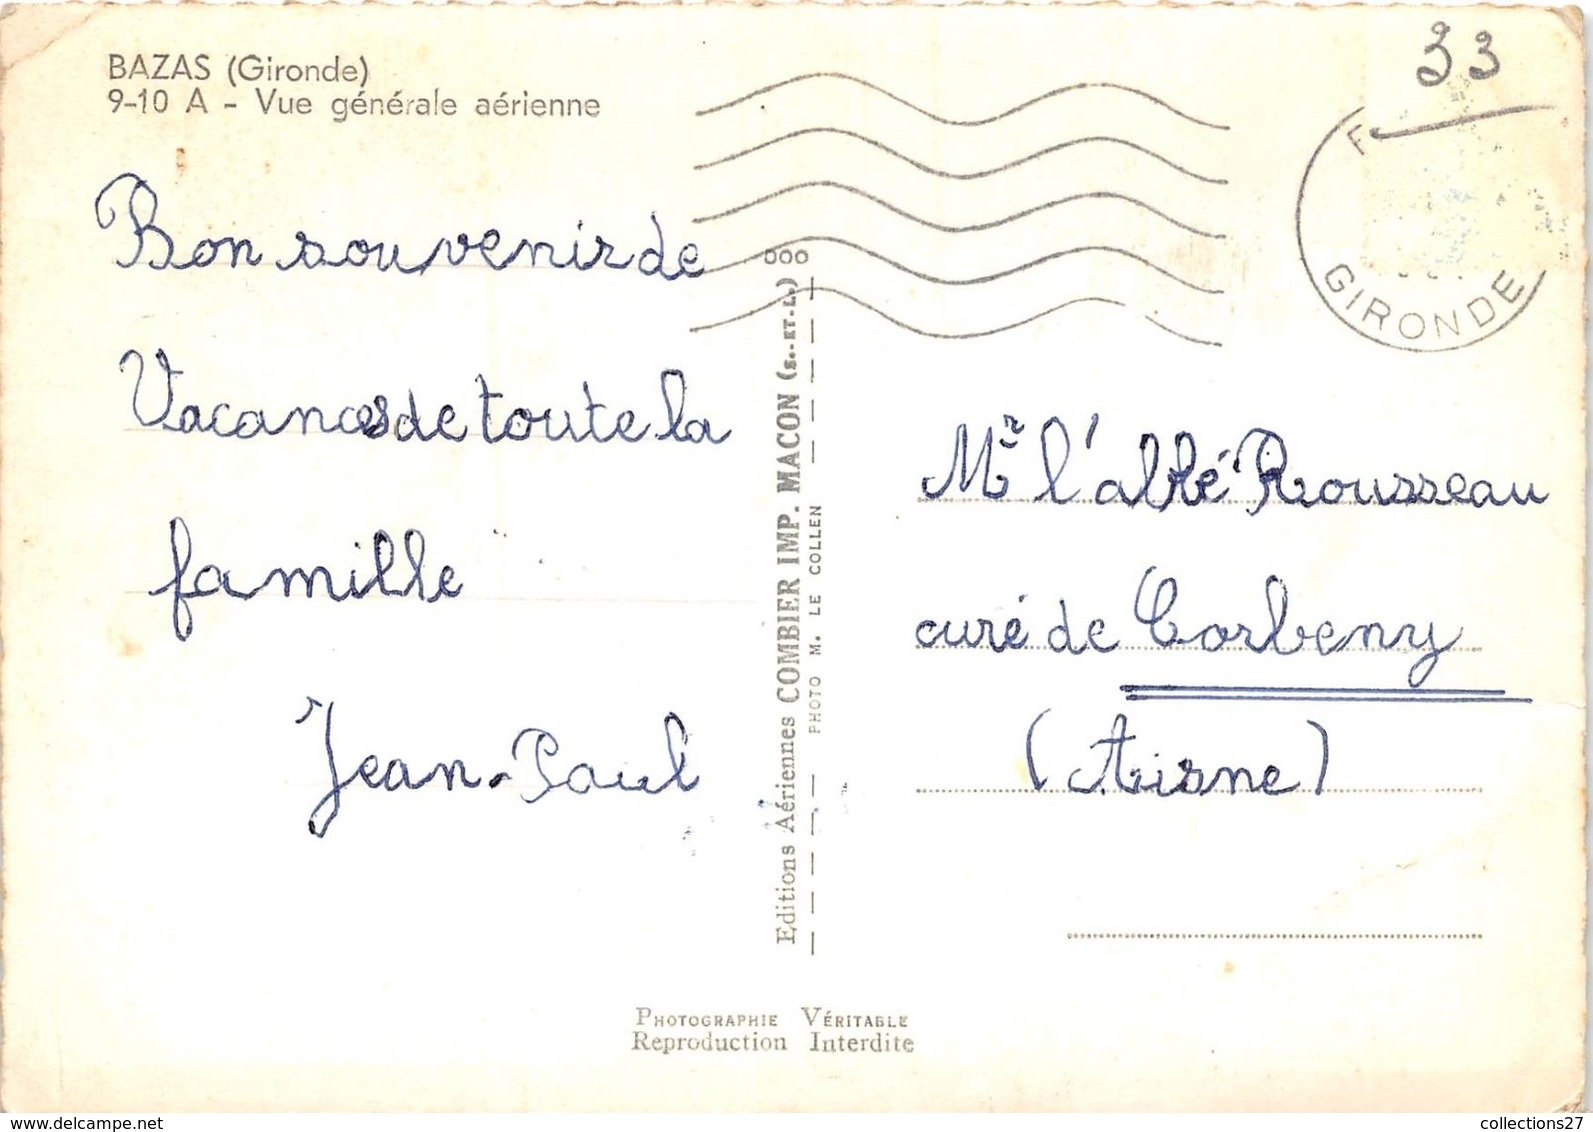 BAZAS (Gironde)
9-10 A - Vue générale aérienne
Bon souvenir de
Vacances de toute la
famille
Jean-Paul
33
GIRONDE
Mr l'abbé Rousseau
curé de Corbeny
(Aisne)
Editions Aériennes COMBIER IMP. MACON (S.-ET-L.)
PHOTO M. LE COLLEN
PHOTOGRAPHIE VÉRITABLE
Reproduction Interdite
collections27